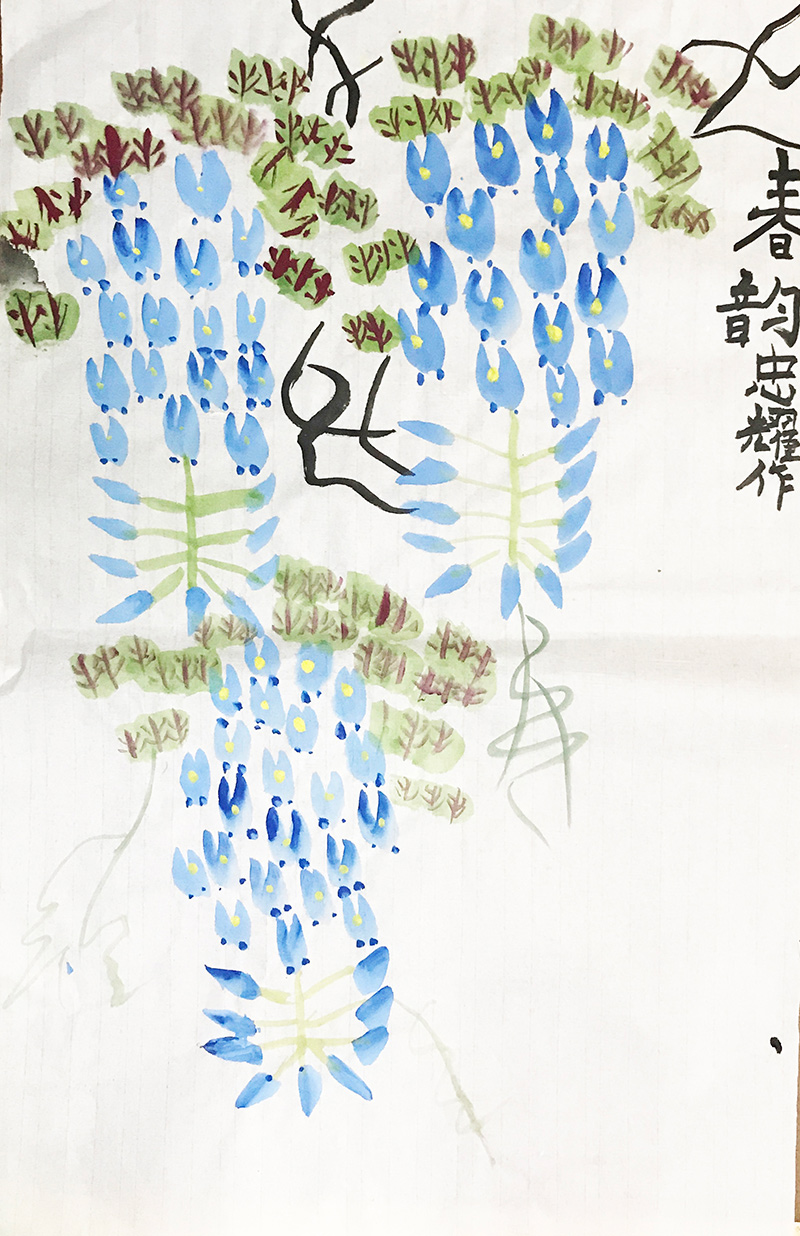 春韵忠耀作